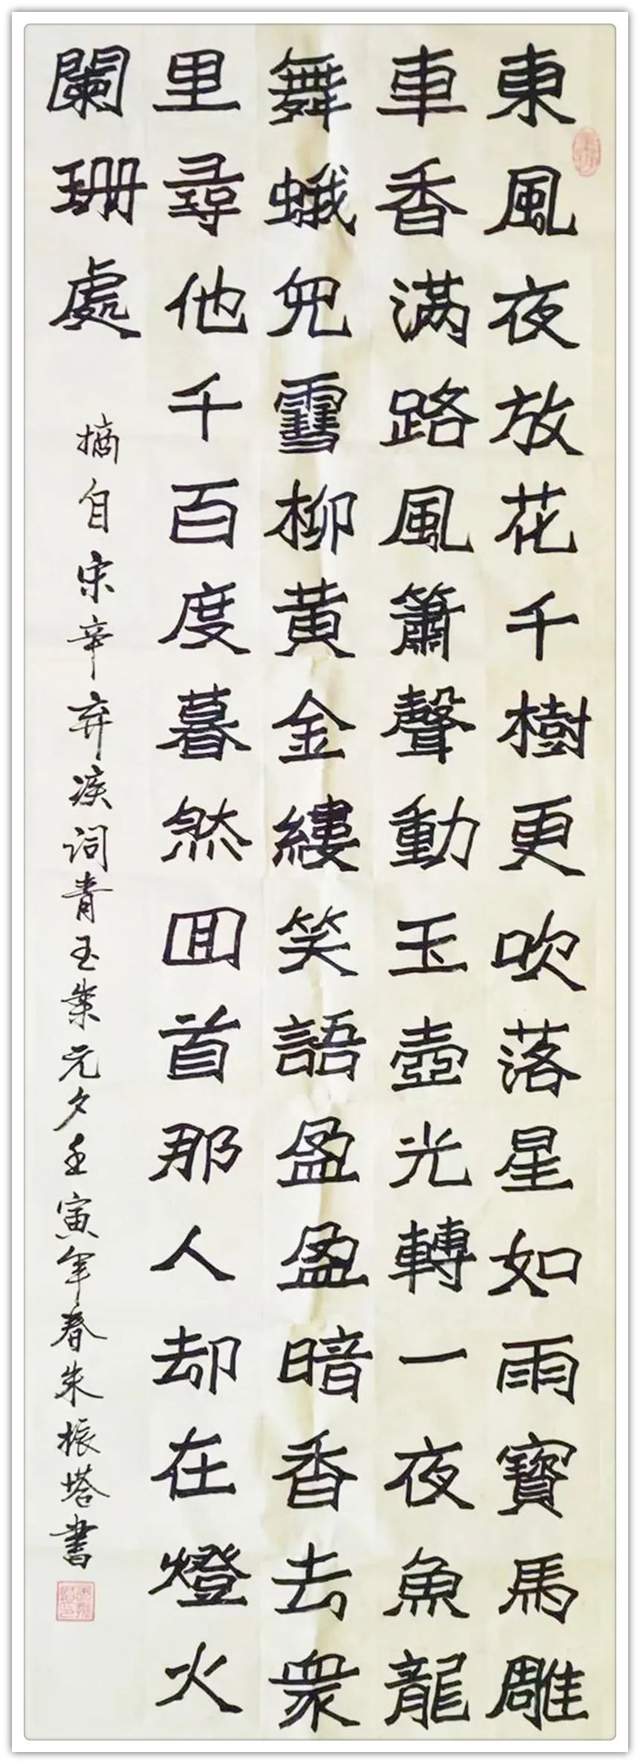 東風夜放花千樹更吹落星如雨寶馬雕
車香满路風簫聲動玉壺光轉一夜魚龍
舞蛾兒雪柳黄金縷笑語盈盈暗香去衆
里尋他千百度暮然回首那人却在燈火
闌珊處
摘自宋辛弃疾词青玉案元夕壬寅年春朱振塔書